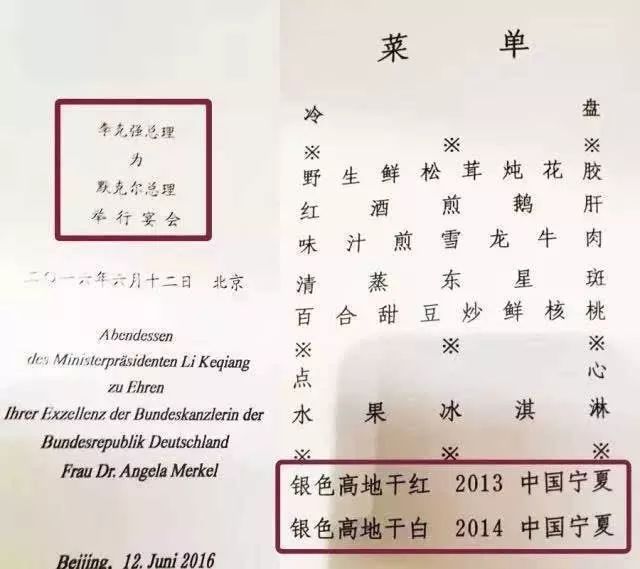 李克强总理
为
默克尔总理
举行宴会
二〇一六年六月十二日 北京
Abendessen
des Ministerpräsidenten Li Keqiang
zu Ehren
Ihrer Exzellenz der Bundeskanzlerin der
Bundesrepublik Deutschland
Frau Dr. Angela Merkel
Beijing, 12. Juni 2016
菜单
冷盘
※ ※ ※
野生鲜松茸炖花胶
红酒煎鹅肝
味汁煎雪龙牛肉
清蒸东星斑
百合甜豆炒鲜核桃
※ ※ ※
点心
水果冰淇淋
※ ※ ※
银色高地干红 2013 中国宁夏
银色高地干白 2014 中国宁夏